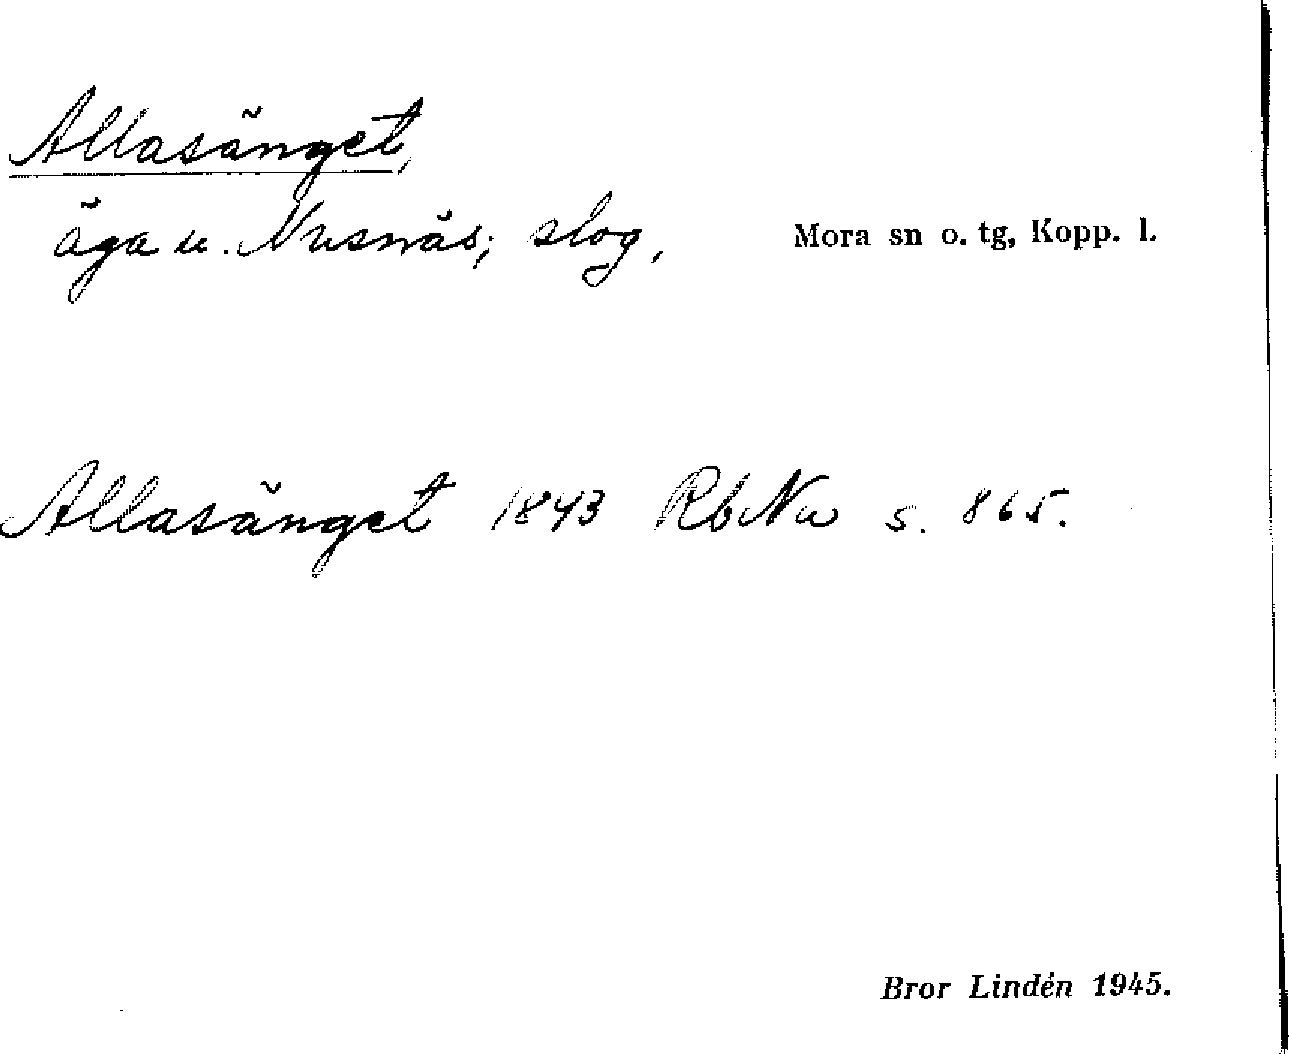 Allasänget,
äga u. Nusnäs; slog, Mora sn o. tg, Kopp. l.
Allasänget 1843 RbNu s. 865.
Bror Lindén 1945.